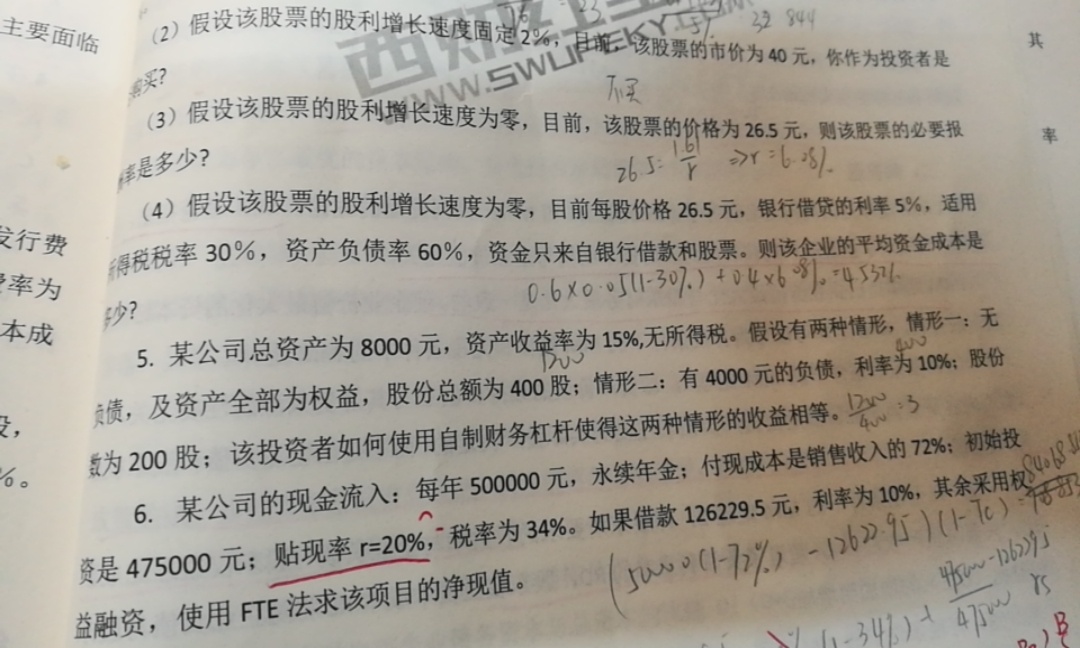 主要面临
（2）假设该股票的股利增长速度固定2%，目前，该股票的市价为40元，你作为投资者是
购买？
不买
（3）假设该股票的股利增长速度为零，目前，该股票的价格为26.5元，则该股票的必要报
率是多少？
26.5=1.61/r ⇒r=6.08%
（4）假设该股票的股利增长速度为零，目前每股价格26.5元，银行借贷的利率5%，适用
所得税税率30%，资产负债率60%，资金只来自银行借款和股票。则该企业的平均资金成本是
多少？
0.6×0.05(1-30%)+0.4×6.08%=4.532%
5. 某公司总资产为8000元，资产收益率为15%,无所得税。假设有两种情形，情形一：无
1200
400
负债，及资产全部为权益，股份总额为400股；情形二：有4000元的负债，利率为10%；股份
数为200股；该投资者如何使用自制财务杠杆使得这两种情形的收益相等。
1200/400=3
6. 某公司的现金流入：每年500000元，永续年金；付现成本是销售收入的72%；初始投
资是475000元；贴现率r=20%，税率为34%。如果借款126229.5元，利率为10%，其余采用权
益融资，使用FTE法求该项目的净现值。
发行费
率为
本成
股，
%。
其
率
西财红宝
WWW.SWUFEKY.